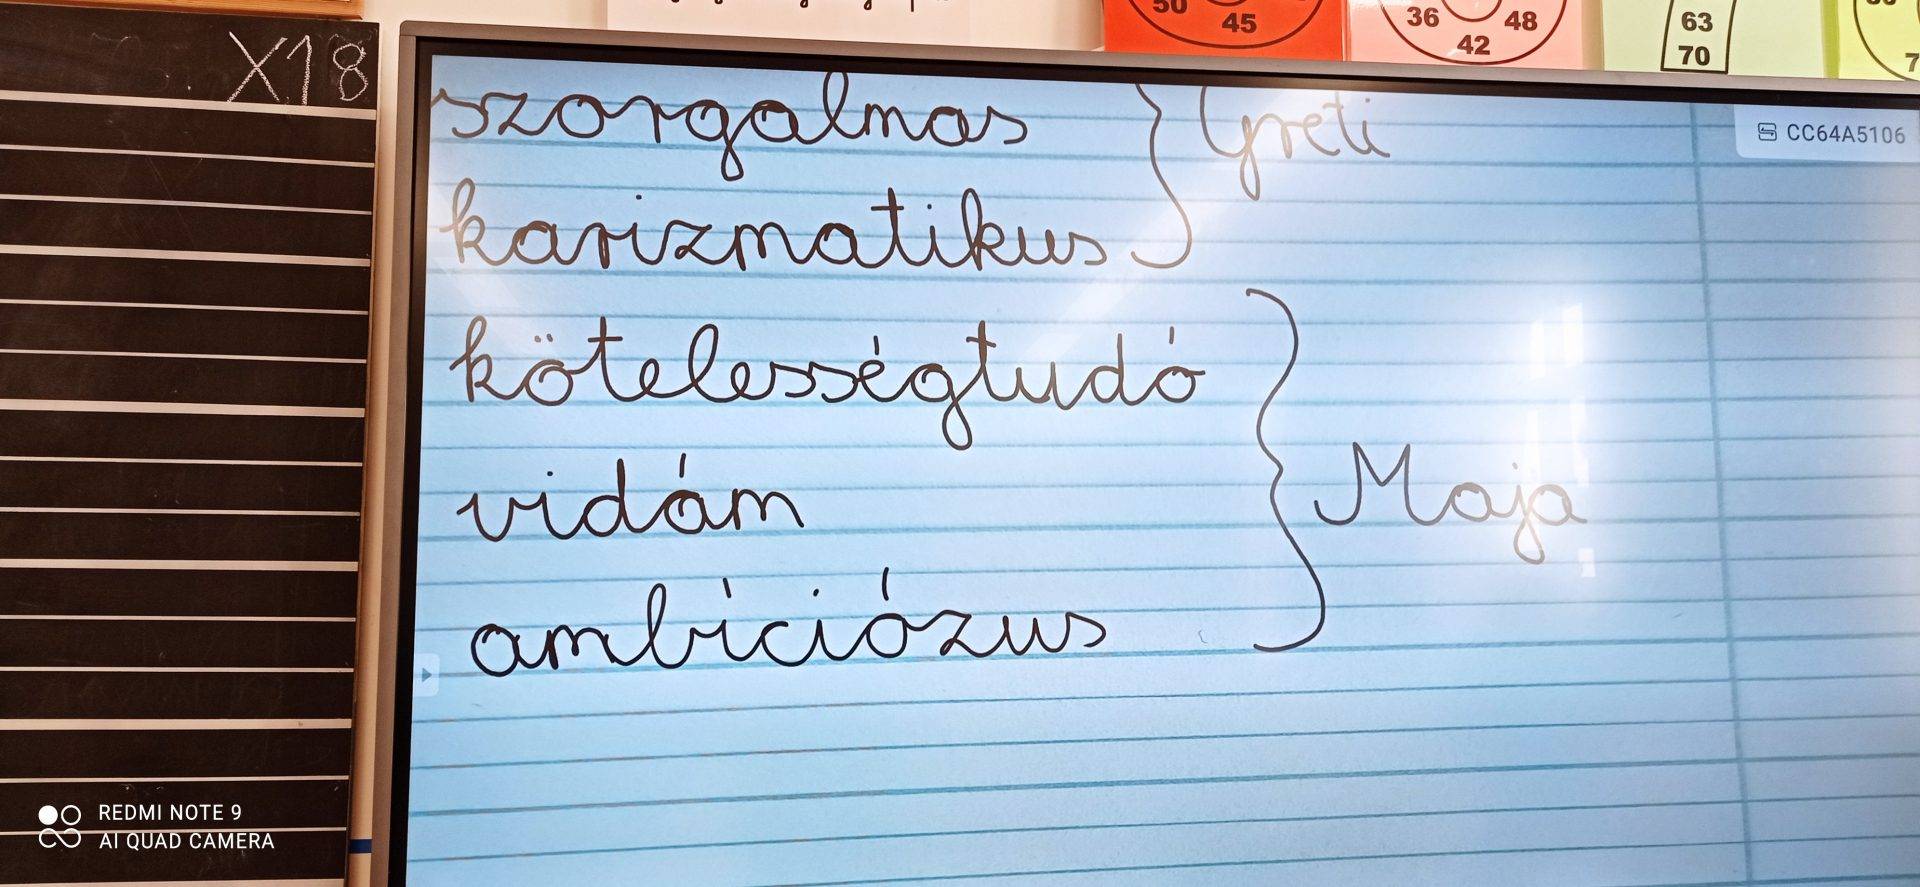 X18
50 45
36 42 48
63
70
CC64A5106
szorgalmas
Greti
karizmatikus
kötelességtudó
vidám
Maja
ambíciózus
REDMI NOTE 9
AI QUAD CAMERA